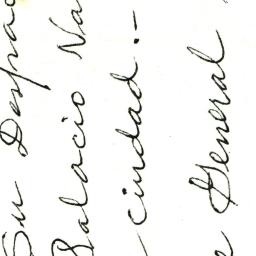 Su Despac
Palacio Na
ciudad.-
General